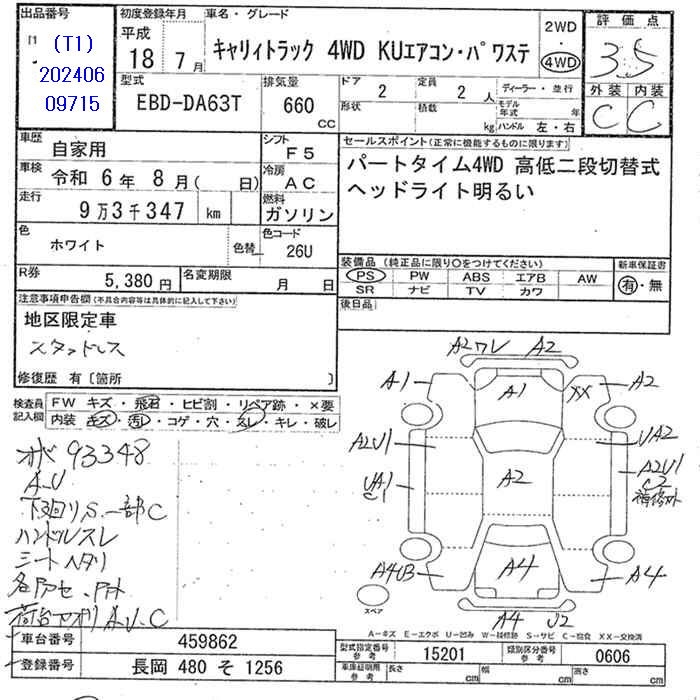 出品番号
(T1)
202406
09715
初度登録年月
平成
18 7月
車名・グレード
キャリィトラック 4WD KUエアコン・パワステ
2WD
・
4WD
評価点
3.5
外装 内装
C C
型式
EBD-DA63T
排気量
660
cc
ドア
2
形状
定員
2 人
積載
kg
ディーラー・並行
モデル年式 年
ハンドル 左・右
車歴
自家用
シフト
F5
車検
令和 6年 8月( 日)
冷房
AC
走行
9万3千347 km
燃料
ガソリン
色
ホワイト
色替
色コード
26U
R券
5,380円
名変期限
月 日
セールスポイント(正常に機能するものに限ります)
パートタイム4WD 高低二段切替式
ヘッドライト明るい
装備品(純正品に限り○をつけてください)
PS PW ABS エアB AW
SR ナビ TV カワ
新車保証書
有・無
後日品
注意事項申告欄(不具合内容等は具体的に記入して下さい)
地区限定車
スタッドレス
修復歴 有〔箇所 〕
検査員
記入欄
FW キズ・飛石・ヒビ割・リペア跡・×要
内装 キズ・汚れ・コゲ・穴・スレ・キレ・破レ
オド 93348
A.U
下廻りS.一部C
ハンドルスレ
シートヘタリ
荷台アオリA.U.C
A2ワレ A2
A1 A1 XX A2
A2U1 UA2
A2
UA1
C1
A2U1
C2
A4UB A4 A4
A4 U2
スペア
A-キズ E-エクボ U-凹み W-補修跡 S-サビ C-腐食 XX-交換済
車台番号 459862
登録番号 長岡 480 そ 1256
型式指定番号
参考
15201
類別区分番号
参考
0606
車庫証明用
参考
長さ cm 幅 cm 高さ cm